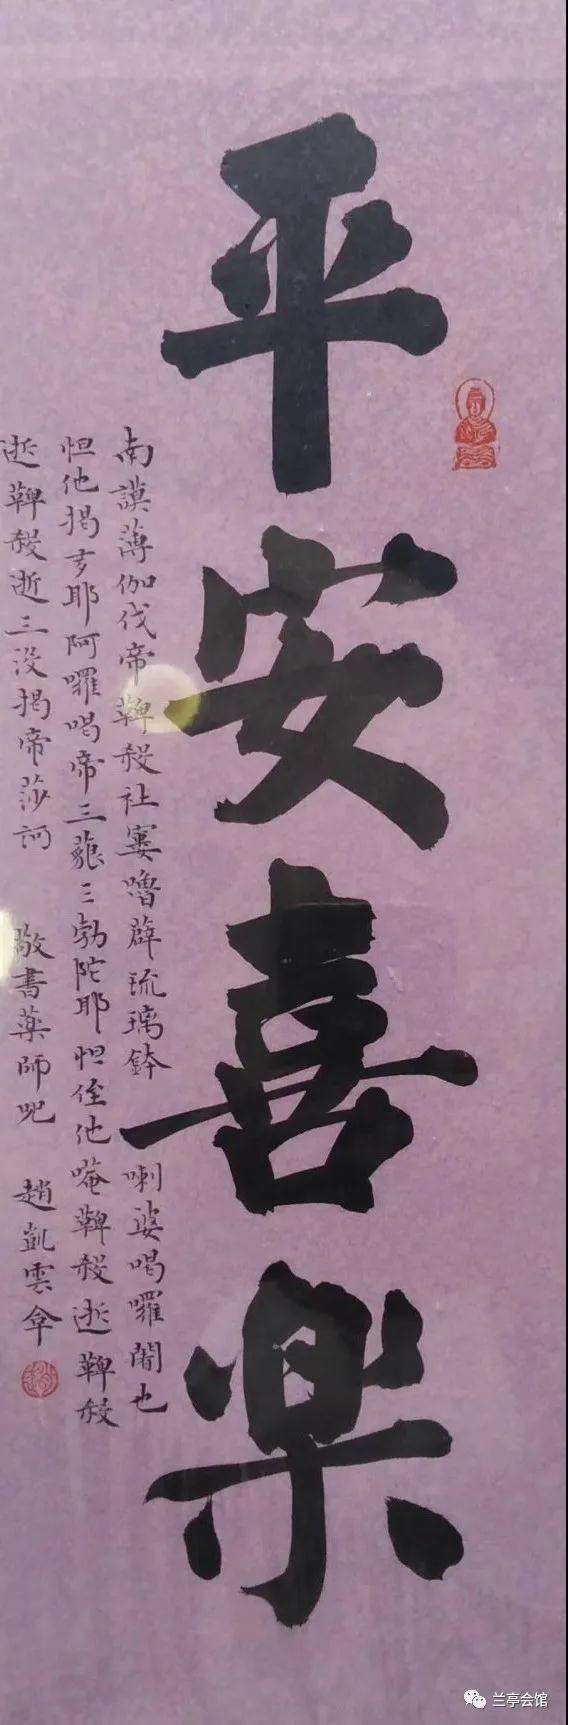 平安喜樂
南謨薄伽伐帝鞞殺社窶嚕薜琉璃鉢喇婆喝囉闍也
怛他揭多耶阿囉喝帝三藐三勃陀耶怛侄他唵鞞殺逝鞞殺
逝鞞殺逝三没揭帝莎訶 敬書藥師咒 趙凱雲拿
兰亭会馆